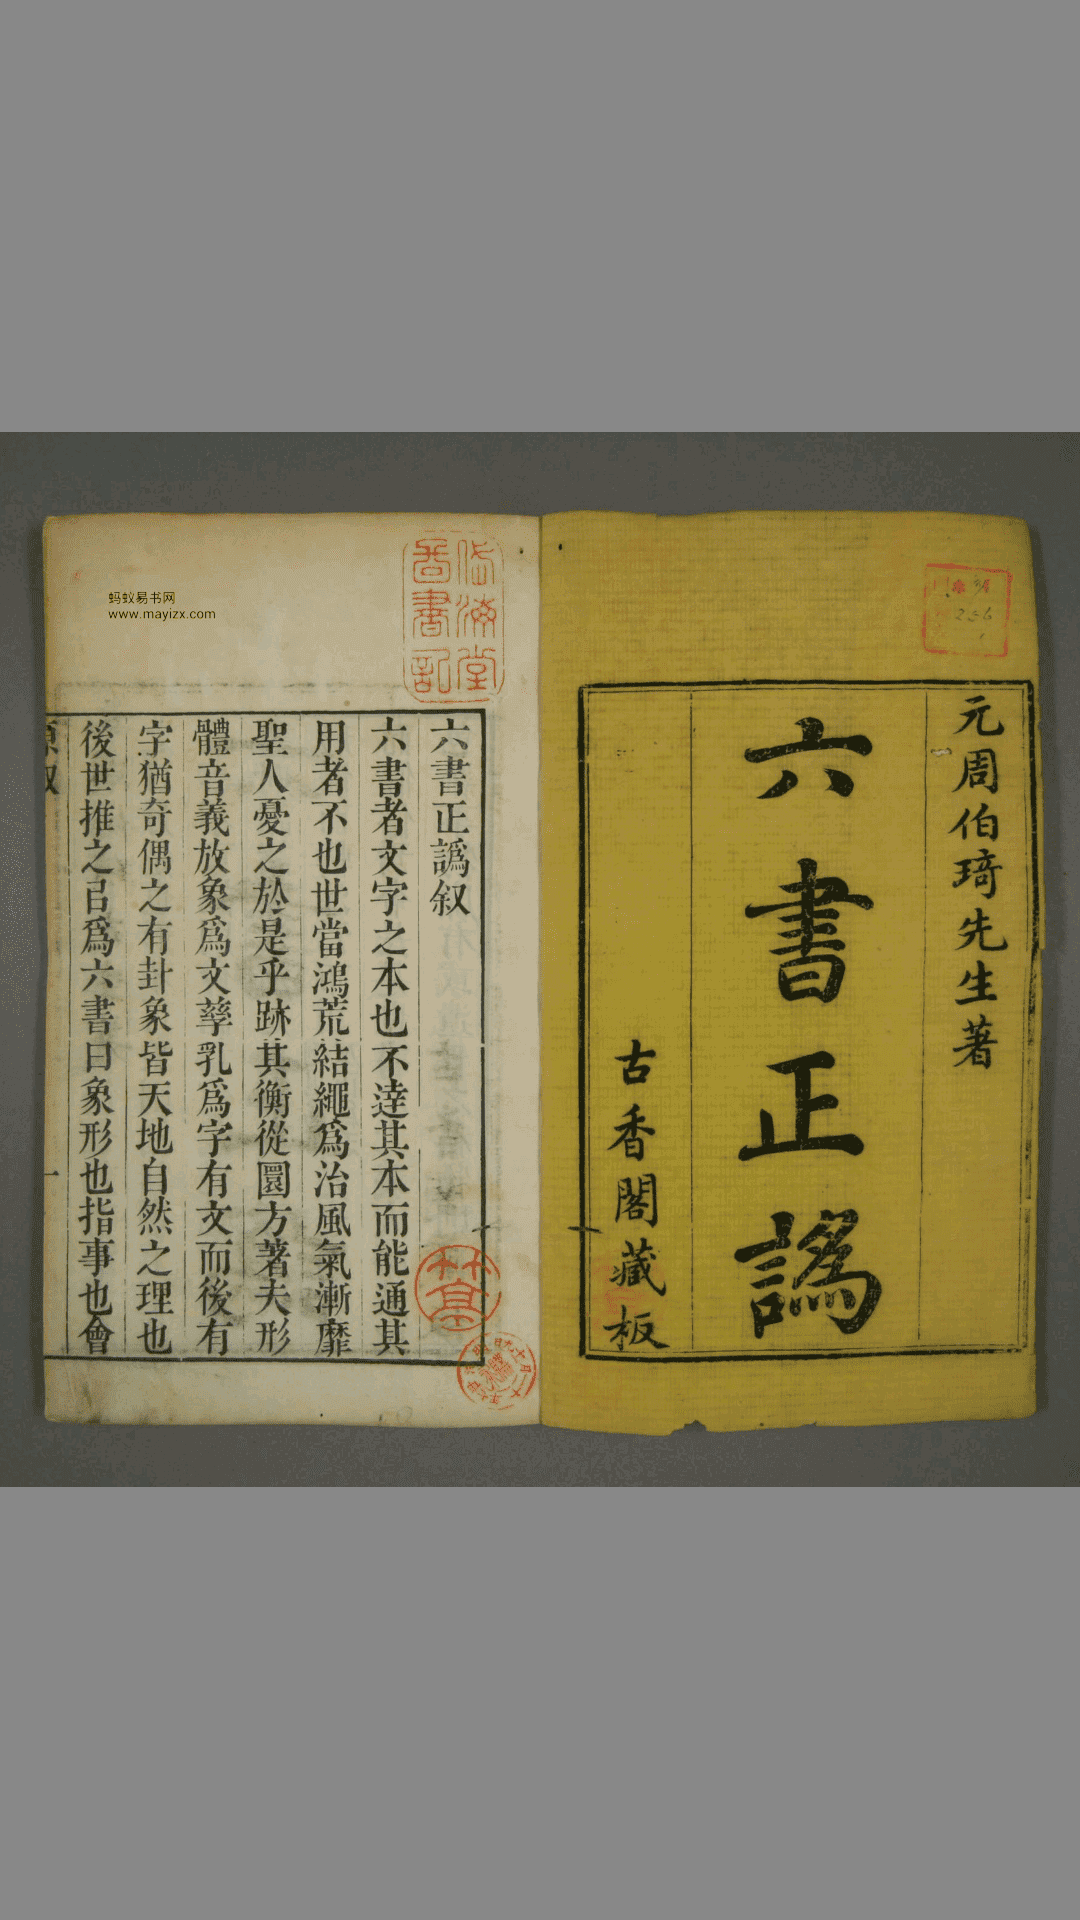 元周伯琦先生著
六書正譌
古香閣藏板
六書正譌叙
六書者文字之本也不逹其本而能通其
用者不也世當鴻荒結繩爲治風氣漸靡
聖人憂之於是乎跡其衡從圜方著夫形
體音義放象爲文孳乳爲字有文而後有
字猶奇偶之有卦象皆天地自然之理也
後世推之㠯爲六書曰象形也指事也會
蚂蚁易书网
www.mayizx.com
256